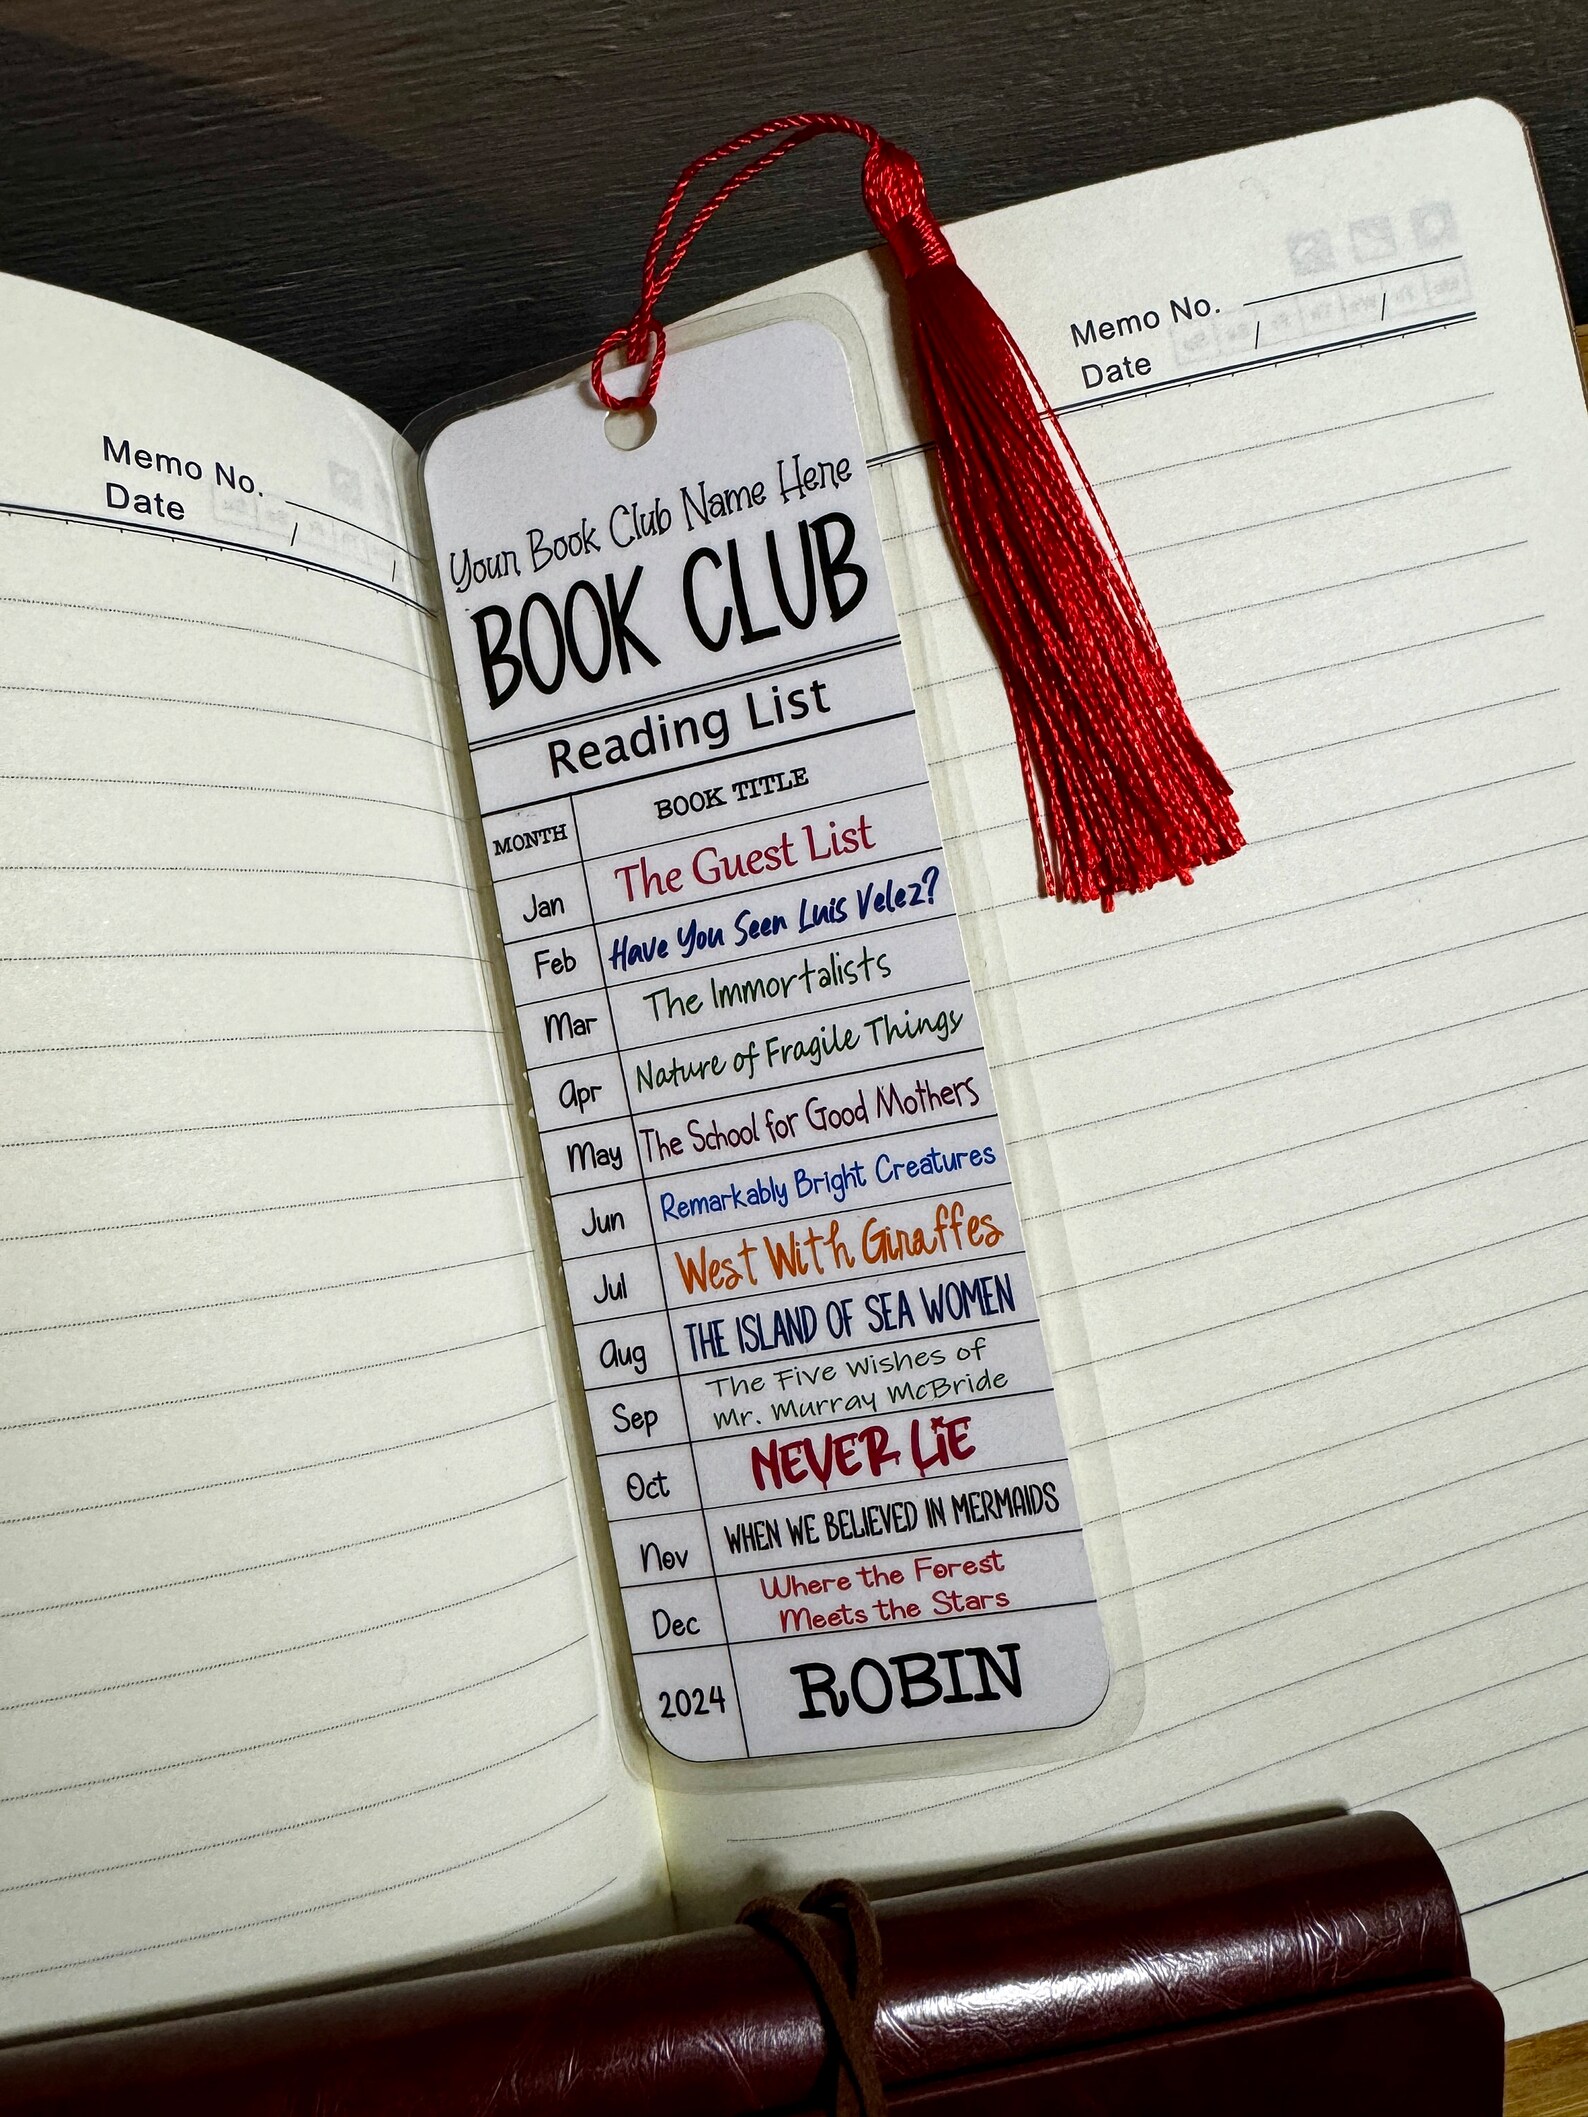 Memo No.
Date / /
Memo No.
Date / /
Your Book Club Name Here
BOOK CLUB
Reading List
MONTH BOOK TITLE
Jan The Guest List
Feb Have You Seen Luis Velez?
Mar The Immortalists
Apr Nature of Fragile Things
May The School for Good Mothers
Jun Remarkably Bright Creatures
Jul West With Giraffes
Aug THE ISLAND OF SEA WOMEN
Sep The Five Wishes of
Mr. Murray McBride
Oct NEVER LIE
Nov WHEN WE BELIEVED IN MERMAIDS
Dec Where the Forest
Meets the Stars
2024 ROBIN